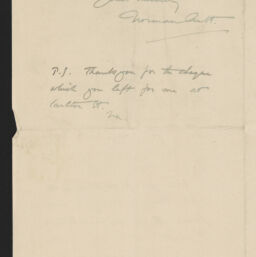 Norman Ault
P.S. Thank you for the
which you left for me at
Carlton St.